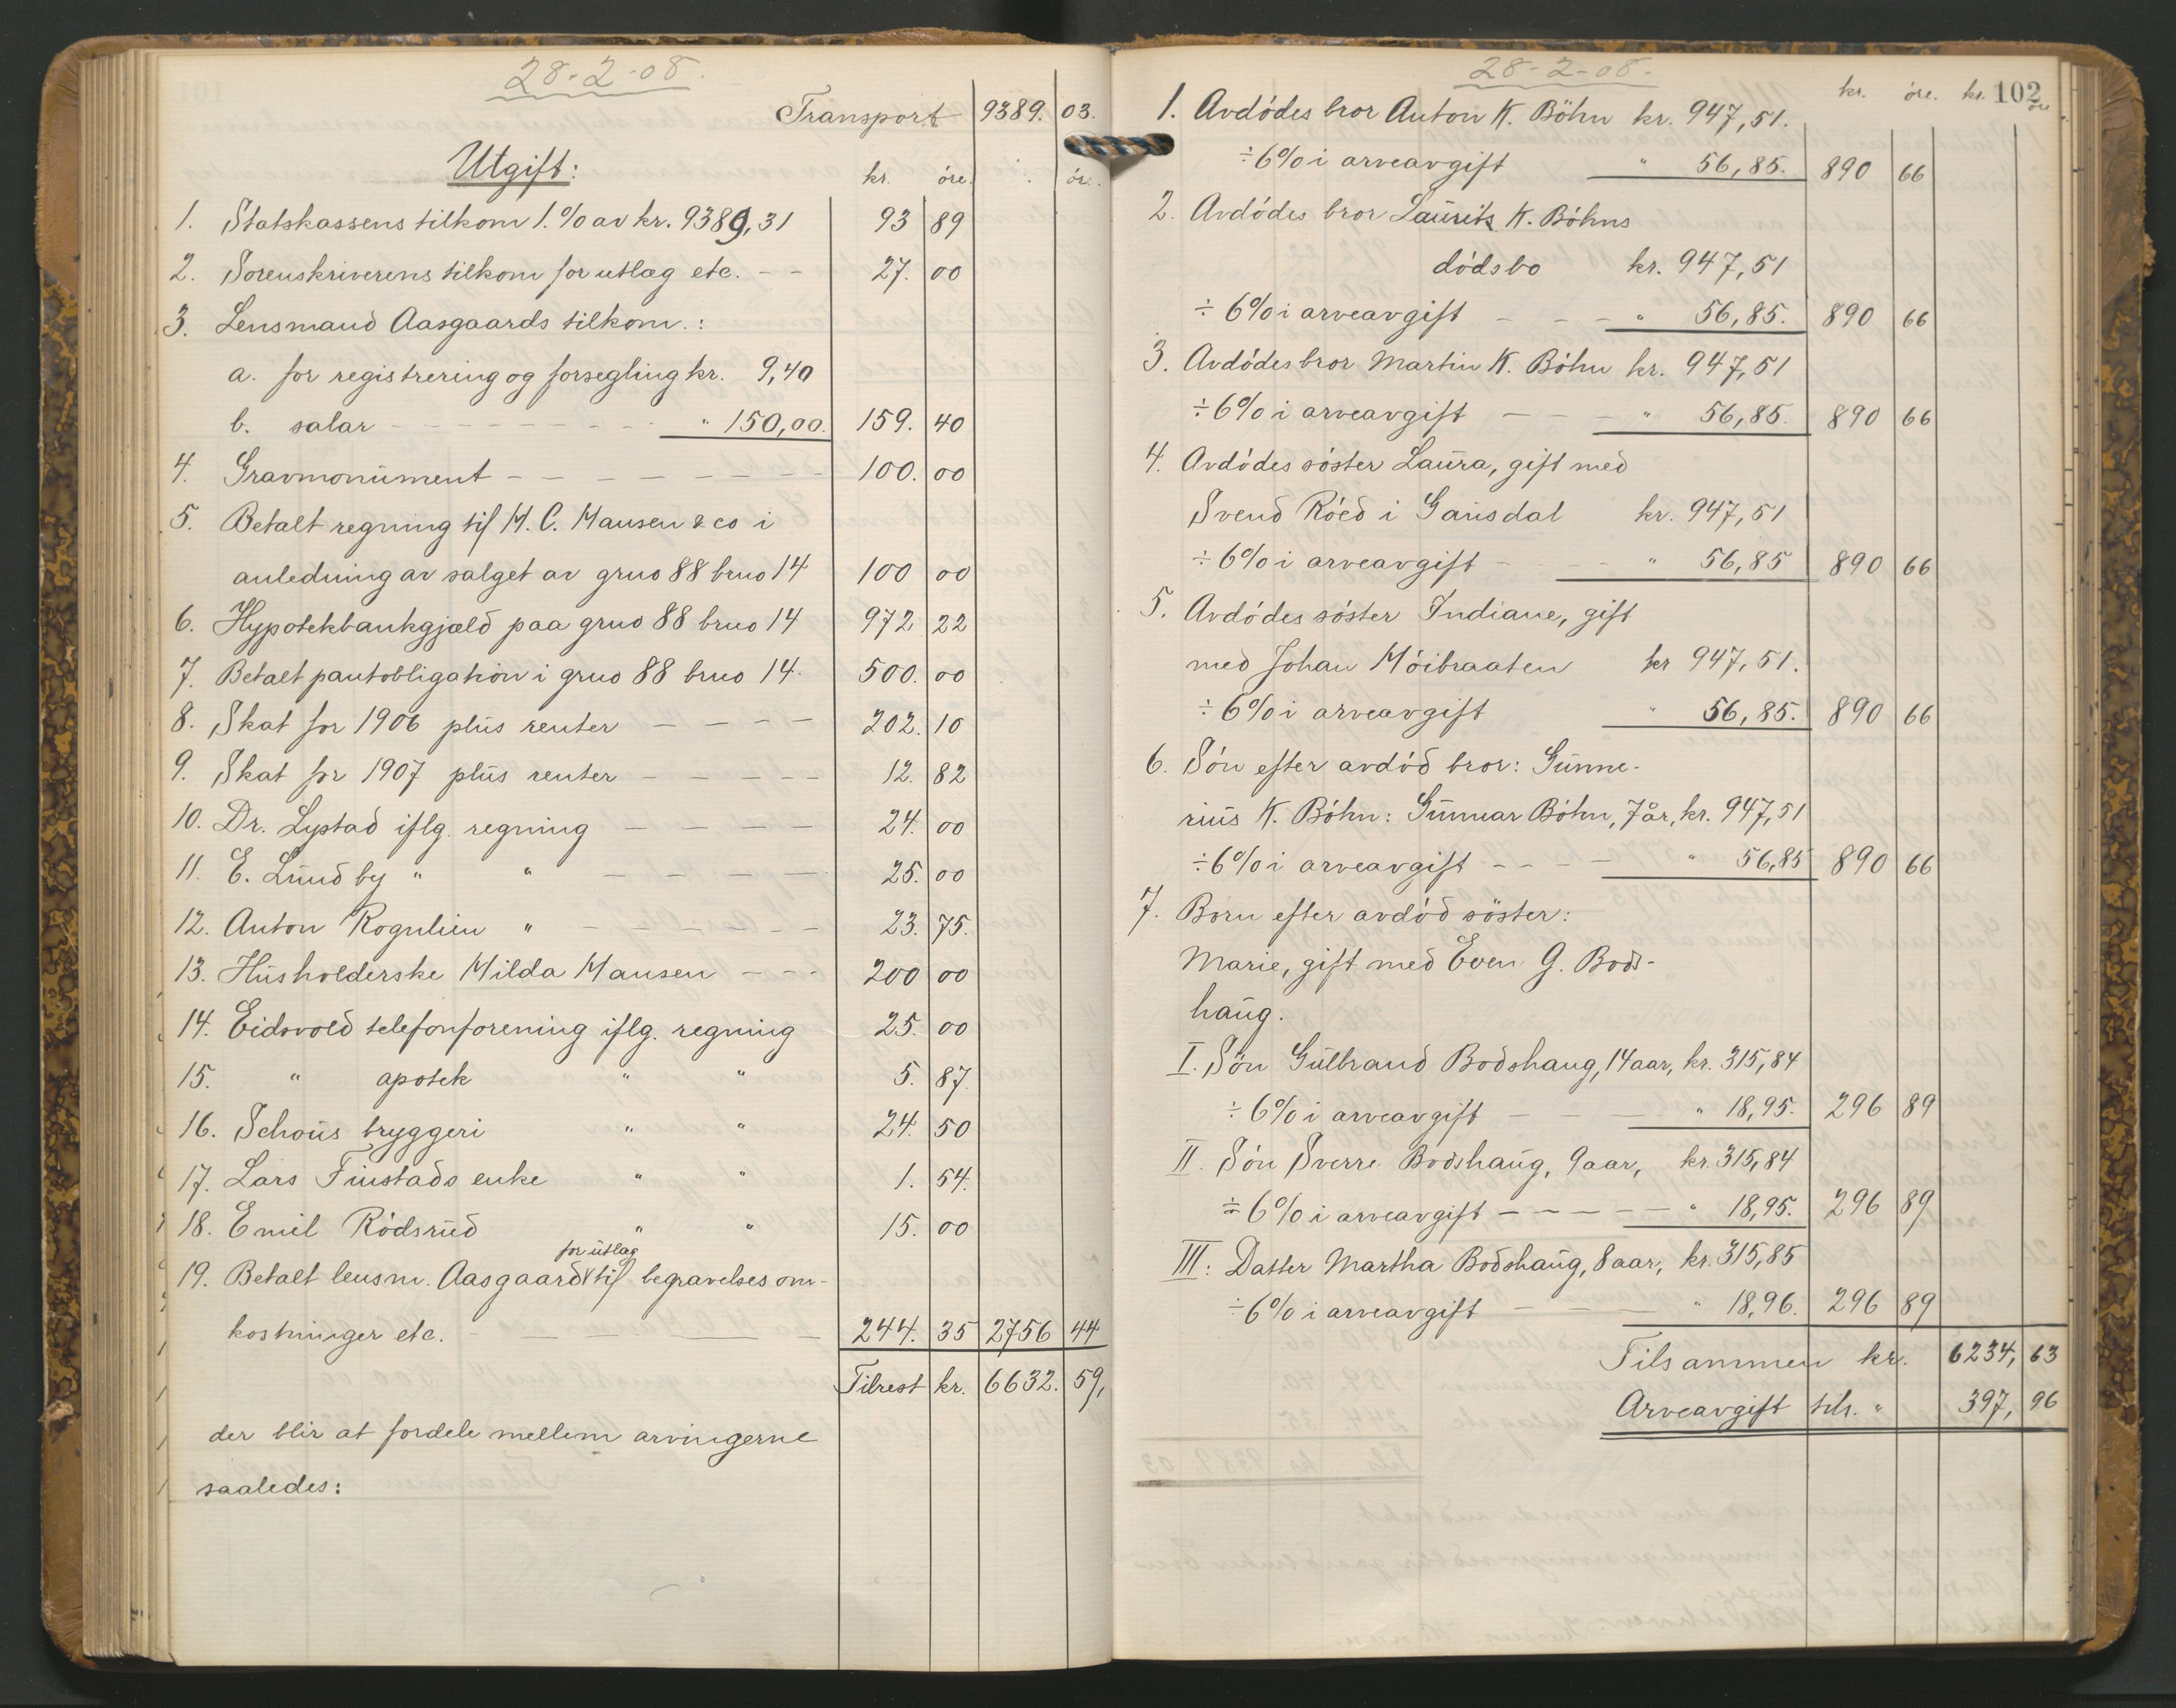 28-2-08.
Transport 9389. 03.
Utgift: kr. öre. ör.
1. Statskassens tilkom 1.% av kr. 9389,31 93 89
2. Sorenskriverens tilkom for utlæg etc. - - 27. 00
3. Lensmand Aasgaards tilkom.:
a. for registrering og forsegling kr. 9,40
b. salær - - - - - - - - - " 150,00. 159. 40
4. Gravmonument - - - - - - - 100. 00
5. Betalt regning til H. C. Hansen & co i
anledning av salget av gruo 88 bruo 14 100 00
6. Hypotekbankgjæld paa gruo 88 bruo 14 972 22
7. Betalt pantobligation i gruo 88 bruo 14. 500. 00
8. Skat for 1906 plus renter - - - - 202. 10
9. Skat for 1907 plus renter - - - - - 12. 82
10. Dr. Lystad iflg. regning - - - - 24. 00
11. E. Lundby " " - - - - - 25. 00
12. Anton Rognlien " - - - - - - 23. 75.
13. Husholderske Hilda Hansen - - - 200 00
14. Eidsvold telefonforening iflg. regning 25. 00
15. " apotek " " 5. 87.
16. Schous bryggeri " " 24. 50
17. Lars Finstads enke " " 1. 54.
18. Emil Rödsrud " " 15. 00
for utlæg
19. Betalt lensm. Aasgaard til begravelses om-
kostninger etc. - - - - 244. 35 2756 44
Tilrest kr. 6632. 59,
der blir at fordele mellem arvingerne
saaledes:
28-2-08.
kr. öre. kr. 102 öre
1. Avdödes bror Anton K. Böhn kr. 947,51.
÷ 6% i arveavgift " 56,85. 890 66
2. Avdödes bror Laurits K. Böhns
dödsbo kr. 947,51
÷ 6% i arveavgift - - - " 56,85. 890 66
3. Avdödes bror Martin K. Böhn kr. 947,51
÷ 6% i arveavgift - - - " 56,85. 890 66
4. Avdödes söster Laura, gift med
Svend Röed i Gausdal kr. 947,51
÷ 6% i arveavgift - - - " 56,85 890 66
5. Avdödes söster Indiane, gift
med Johan Höibraaten kr 947,51.
÷ 6% i arveavgift " 56,85. 890 66
6. Sön efter avdöd bror: Gunne-
rius K. Böhn: Gunnar Böhn, 7 år, kr. 947,51
÷ 6% i arveavgift - - - - " 56,85 890 66
7. Born efter avdöd söster:
Marie, gift med Even G. Bods-
haug.
I. Sön Gulbrand Bodshaug, 14 aar, kr. 315,84
÷ 6% i arveavgift - - - " 18,95. 296 89
II. Sön Sverre Bodshaug, 9 aar, kr. 315,84
÷ 6% i arveavgift - - - - - " 18,95. 296 89
III: Datter Martha Bodshaug, 8 aar, kr. 315,85
÷ 6% i arveavgift - - - " 18,96. 296 89
Tilsammen kr. 6234, 63
Arveavgift tils. " 397, 96